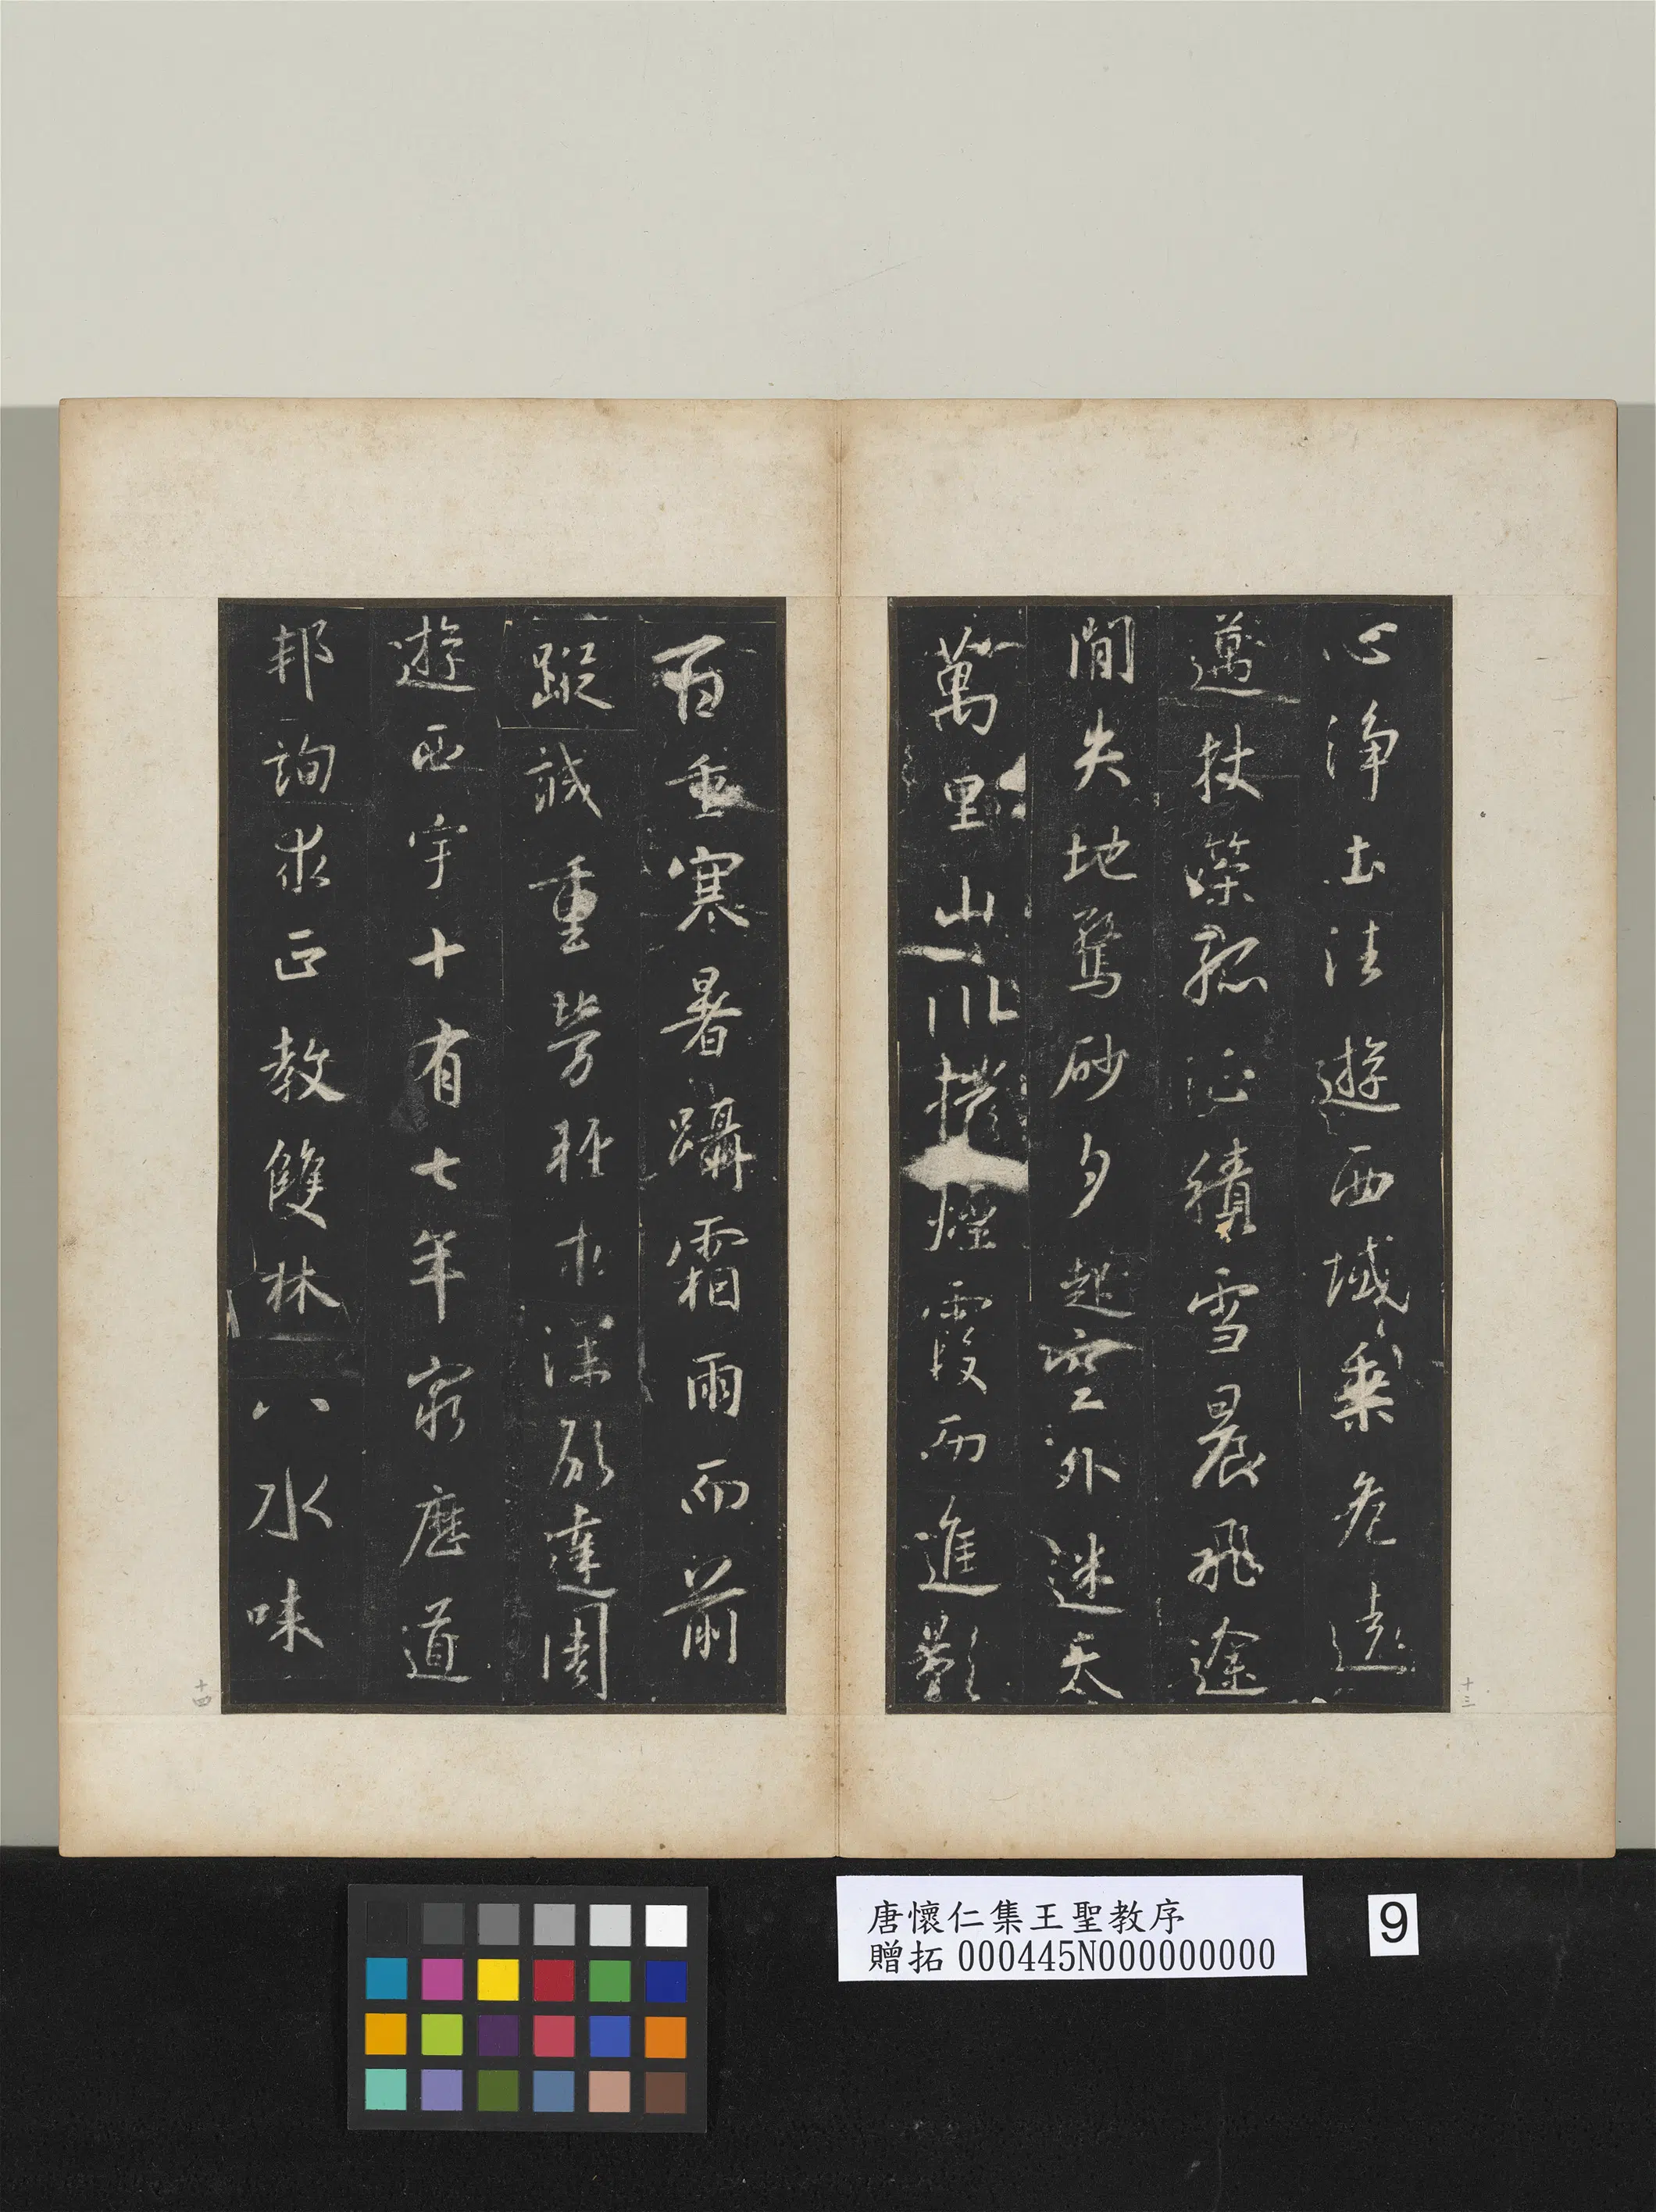 心淨土法遊西域乘危遠
邁杖策孤征積雪晨飛途
閒失地驚砂夕起空外迷天
萬里山川撥煙霞而進影
百重寒暑躡霜雨而前
蹤誠重勞輕求深願達周
遊西宇十有七年窮歷道
邦詢求正教雙林八水味
十三
十四
唐懷仁集王聖教序
贈拓 000445N000000000
9